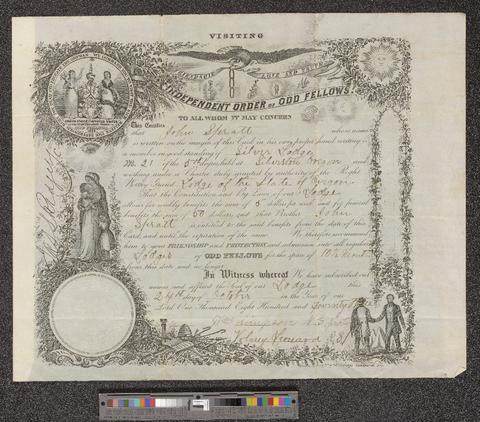 VISITING
FRIENDSHIP LOVE AND TRUTH
INDEPENDENT ORDER OF ODD FELLOWS.
TO ALL WHOM IT MAY CONCERN
This Certifies
that John Spratt whose name
is written on the margin of this Card in his own proper hand writing is
a member in good standing of Silver Lodge
No. 21 of the I.O.O.F. held at Silverton Oregon and
working under a Charter duly granted by authority of the Right
Worthy Grand Lodge of the State of Oregon
That the Constitution and By Laws of our Lodge
Allows for weekly benefits the sum of 5 dollars per week and for funeral
benefits the sum of 50 dollars and that Brother John
Spratt is entitled to the said benefits from the date of this
Card and until the expiration of the same. We therefore recommend
him to your FRIENDSHIP and PROTECTION and admission into all regular
Lodges of ODD FELLOWS for the space of
from this date and no longer.
In Witness whereof We have subscribed our
names and affixed the Seal of our Lodge this
24th day of October in the Year of our
Lord One Thousand Eight Hundred and Seventy